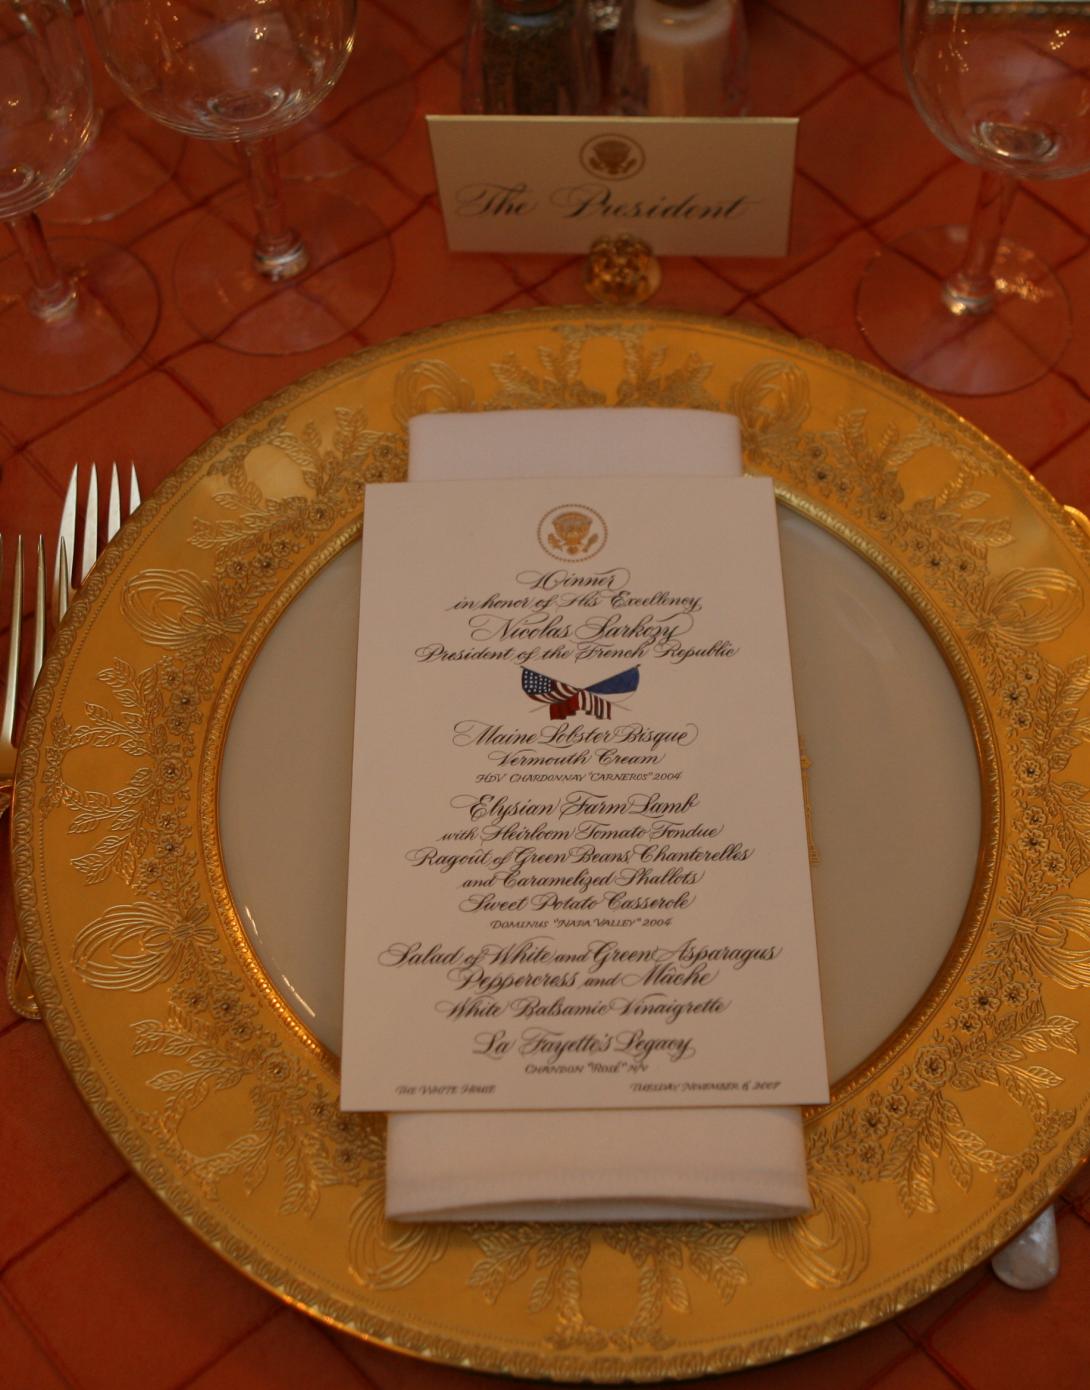 The President
Dinner
in honor of His Excellency
Nicolas Sarkozy
President of the French Republic
Maine Lobster Bisque
Vermouth Cream
HDV CHARDONNAY "CARNEROS" 2004
Elysian Farm Lamb
with Heirloom Tomato Fondue
Ragout of Green Beans, Chanterelles
and Caramelized Shallots
Sweet Potato Casserole
DOMINUS "NAPA VALLEY" 2004
Salad of White and Green Asparagus
Peppercress and Mâche
White Balsamic Vinaigrette
La Fayette's Legacy
CHANDON "ROSÉ" NV
THE WHITE HOUSE
TUESDAY, NOVEMBER 6, 2007